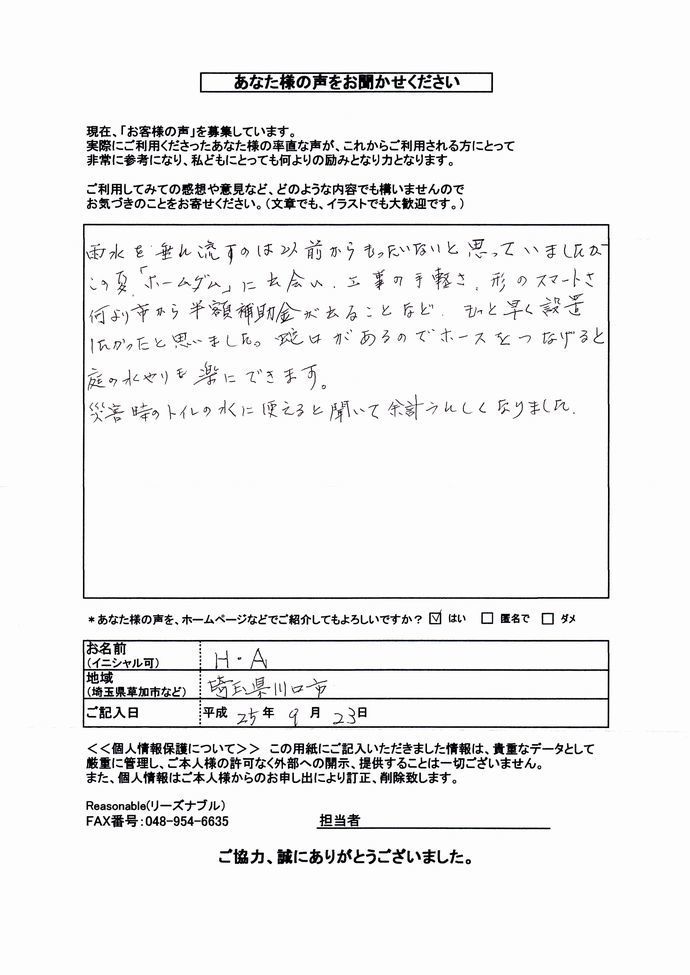 あなた様の声をお聞かせください
現在、「お客様の声」を募集しています。
実際にご利用くださったあなた様の率直な声が、これからご利用される方にとって
非常に参考になり、私どもにとっても何よりの励みとなり力となります。
ご利用してみての感想や意見など、どのような内容でも構いませんので
お気づきのことをお寄せください。(文章でも、イラストでも大歓迎です。)
雨水を垂れ流すのは以前からもったいないと思っていましたが
この夏「ホームダム」に出会い、工事の手軽さ、形のスマートさ
何より市から半額補助金が出ることなど、もっと早く設置
したかったと思いました。蛇口があるのでホースをつなげると
庭の水やりも楽にできます。
災害時のトイレの水に使えると聞いて余計うれしくなりました。
*あなた様の声を、ホームページなどでご紹介してもよろしいですか? ☑ はい □ 匿名で □ ダメ
お名前
(イニシャル可) H・A
地域
(埼玉県草加市など) 埼玉県川口市
ご記入日 平成 25 年 9 月 23 日
<<個人情報保護について>> この用紙にご記入いただきました情報は、貴重なデータとして
厳重に管理し、ご本人様の許可なく外部への開示、提供することは一切ございません。
また、個人情報はご本人様からのお申し出により訂正、削除致します。
Reasonable(リーズナブル)
FAX番号:048-954-6635 担当者
ご協力、誠にありがとうございました。